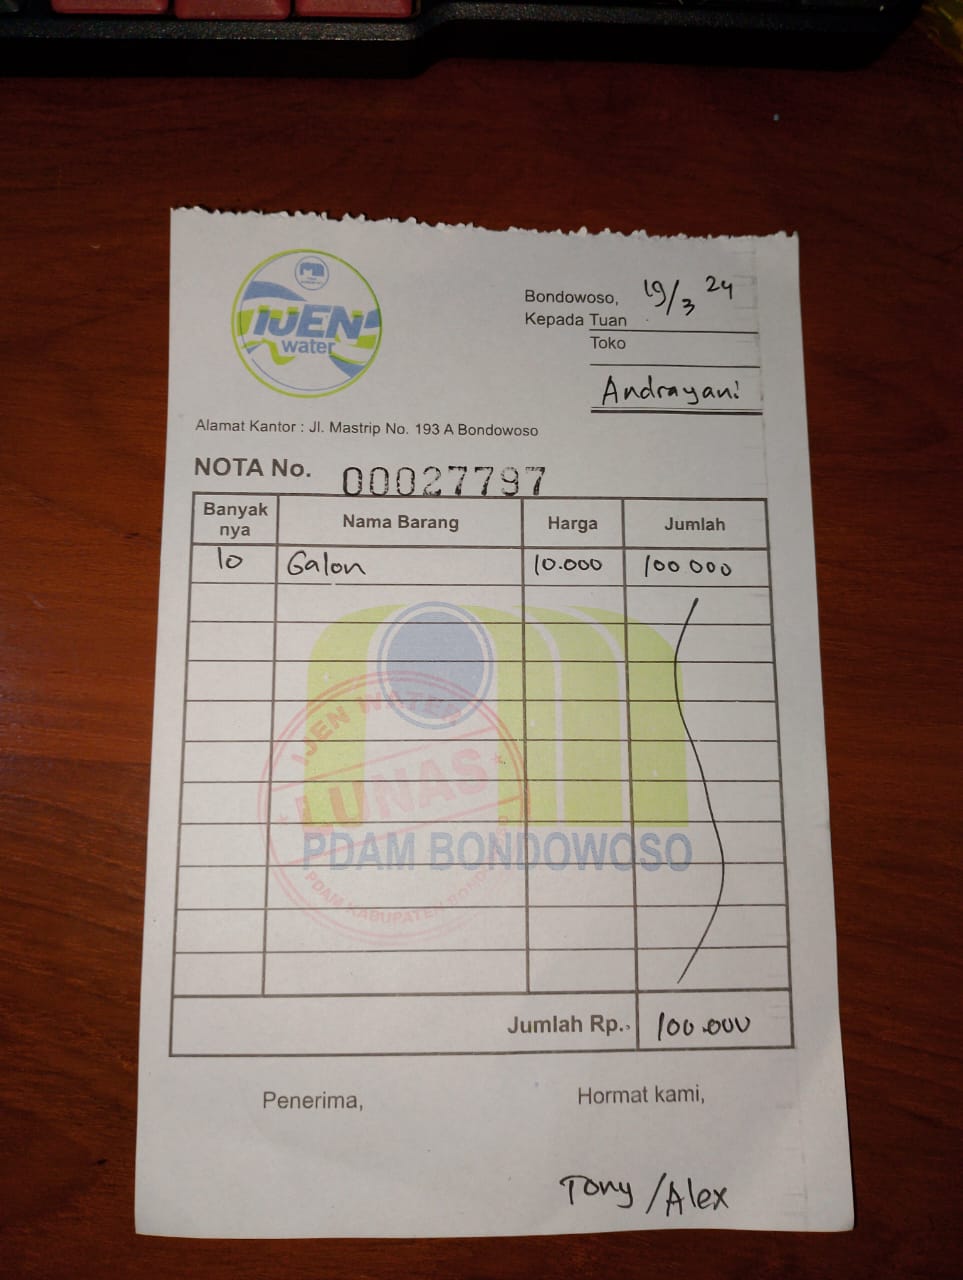 IJEN
water
Bondowoso, 19/3 24
Kepada Tuan
Toko
Andrayani
Alamat Kantor : Jl. Mastrip No. 193 A Bondowoso
NOTA No. 00027797
Banyak nya Nama Barang Harga Jumlah
10 Galon 10.000 100 000
IJEN WATER
LUNAS
PDAM BONDOWOSO
PDAM KABUPATEN
Jumlah Rp. 100.000
Penerima, Hormat kami,
Tony /Alex